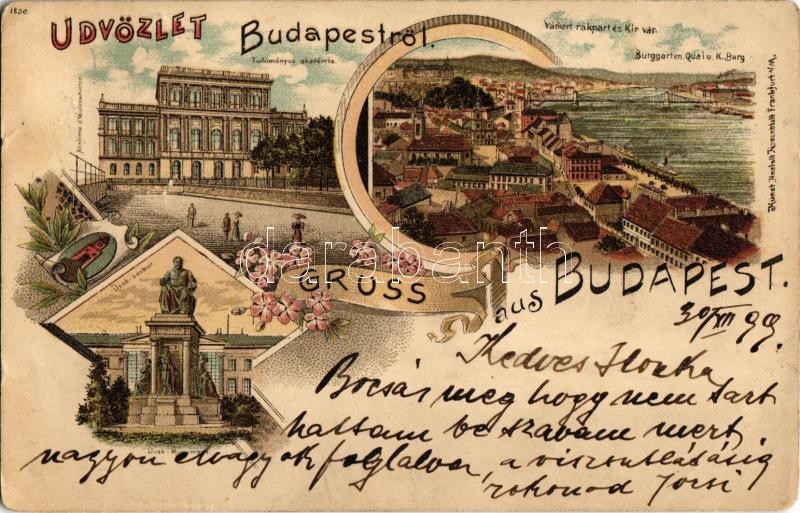 1830
UDVÖZLET Budapestről.
Tudományos akadémia.
Várkert rakpart és Kir vár.
Burggarten, Quai u. K. Burg
Akademie d. Wissenschaften
Kunst Anstalt Rosenblatt Frankfurt a/M.
Deák-szobor
darabanth
GRUSS aus BUDAPEST.
30/XII 99.
Kedves Ilonka
Bocsás meg hogy nem tart
hattam be szavam mert
nagyon el vagyok foglalva, a viszontlátásig
rokonod Jozsi